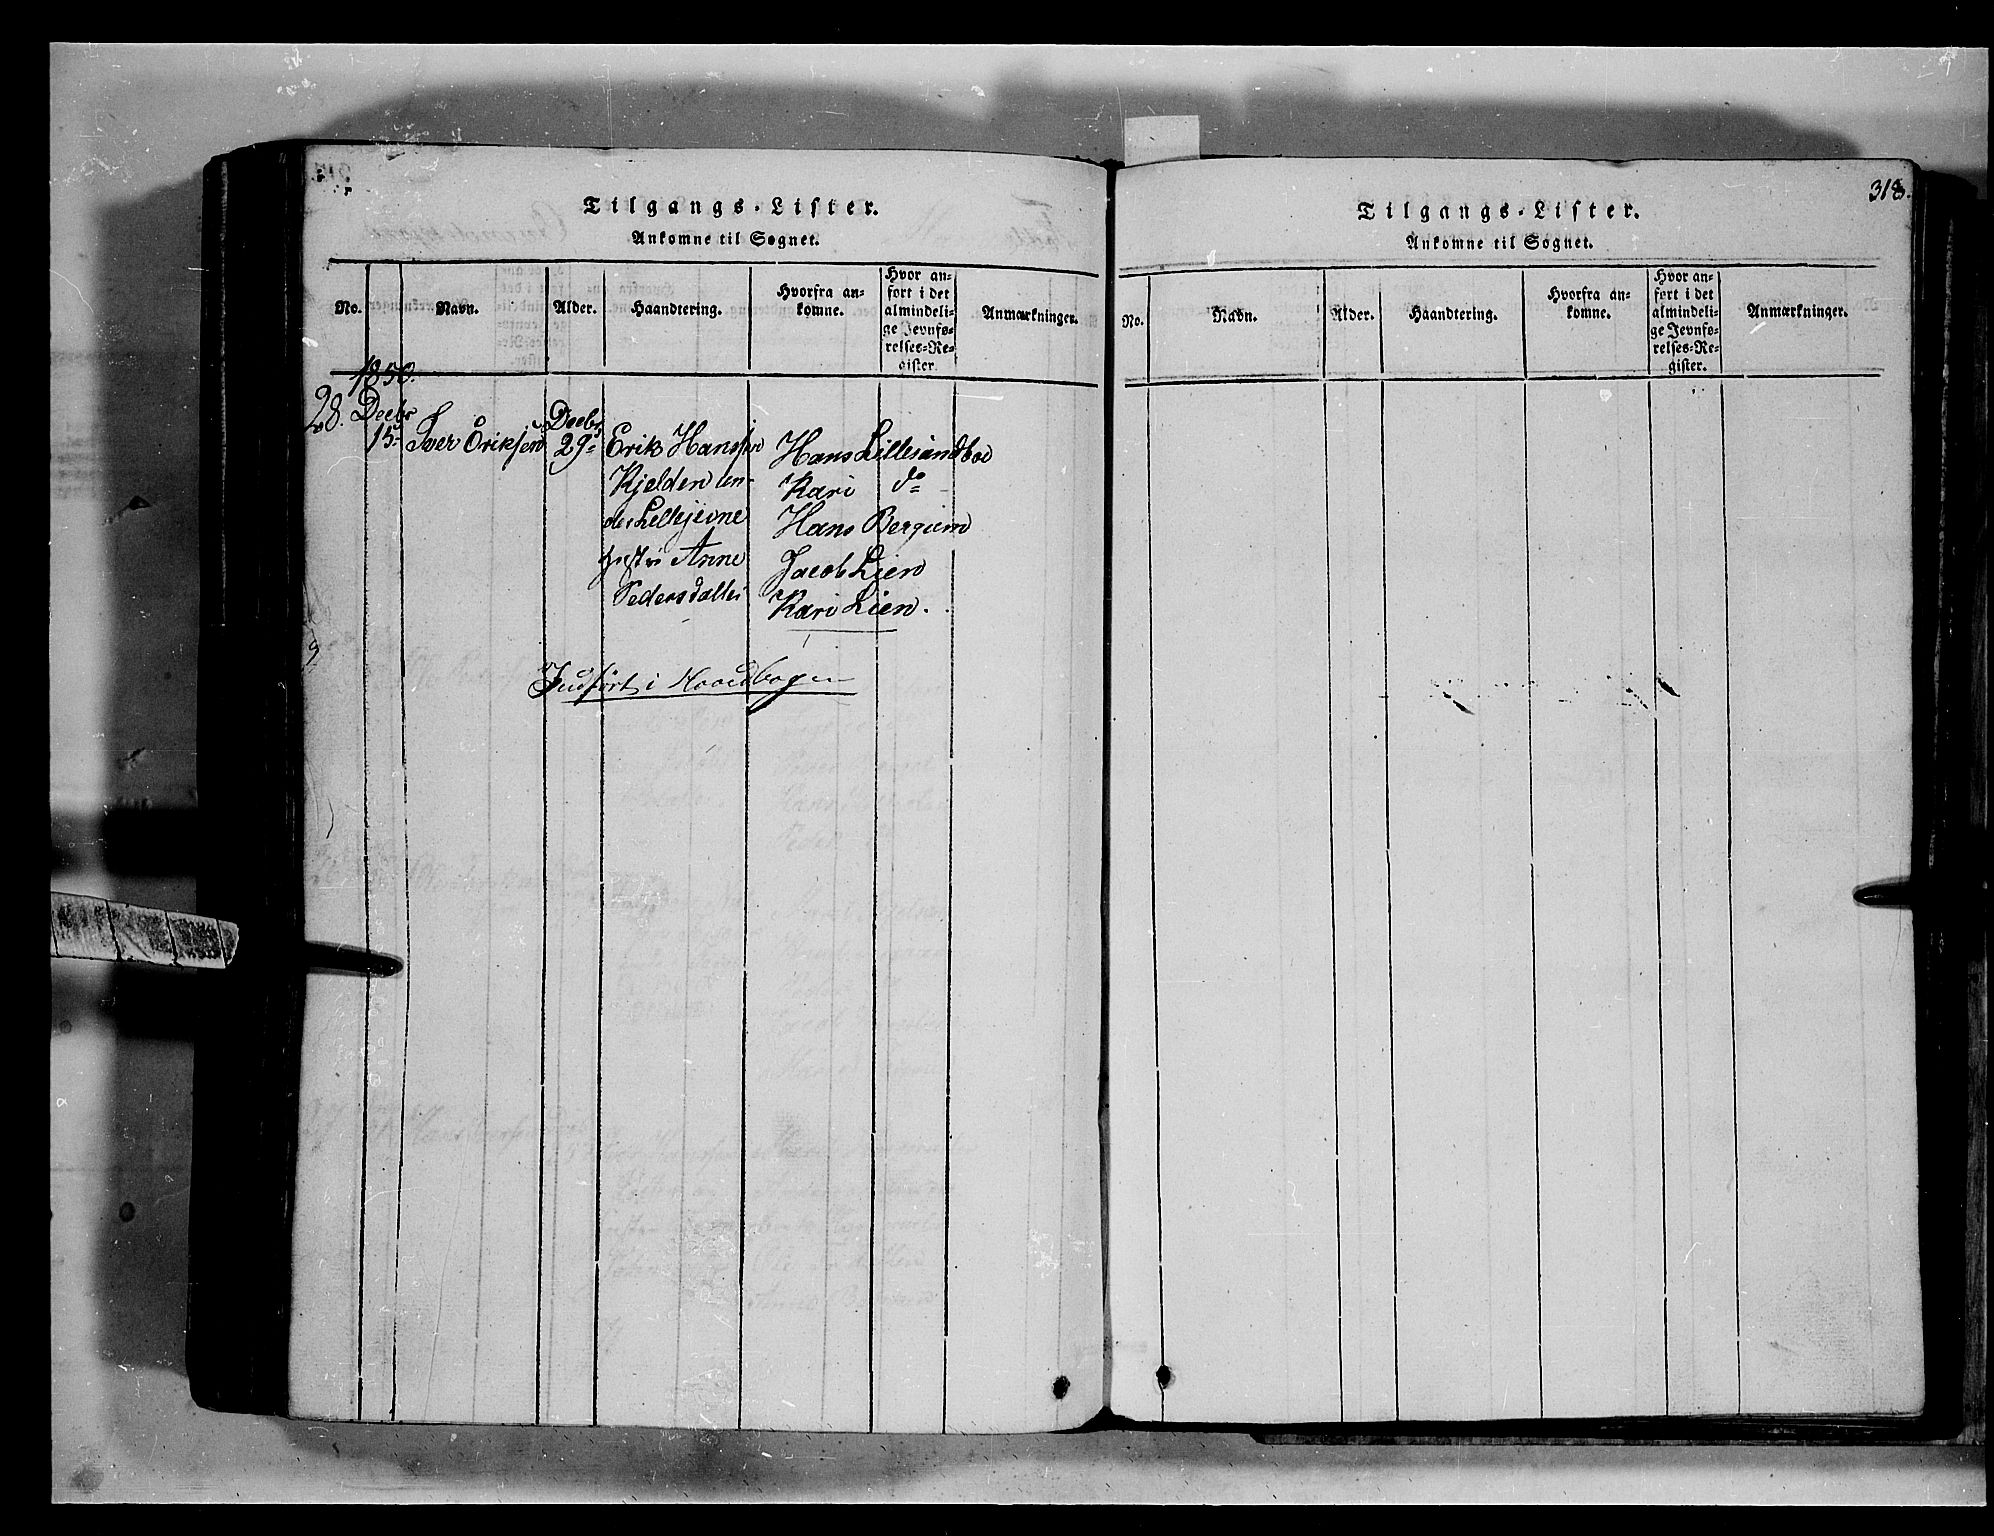 Tilgangs-Lister.
Ankomne til Sognet.
No.
Navn.
Alder.
Haandtering.
Hvorfra an-
komne.
Hvor an-
ført i det
almindeli-
ge Jevnfø-
relses-Re-
gister.
Anmærkninger.
1850.
28. Decbr
15 Iver Eriksen
Decbr
29 Erik Hansen
Kjelden
Anne
Pedersdatter
Hans Lillesandboe
Kari do
Hans Bergum
Jacob Lien
Kari Lien.
Indført i Hovedbogen
318.
Tilgangs-Lister.
Ankomne til Sognet.
No.
Navn.
Alder.
Haandtering.
Hvorfra an-
komne.
Hvor an-
ført i det
almindeli-
ge Jevnfø-
relses-Re-
gister.
Anmærkninger.